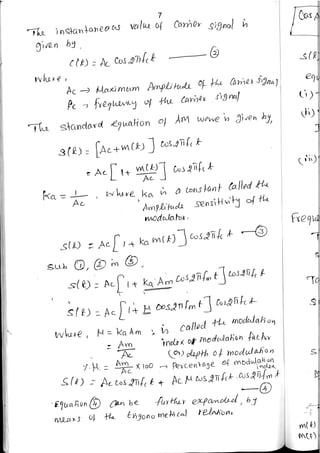 7
The instantaneous value of Carrier signal is
given by,
c(t) = Ac Cos 2πfct —②
where,
Ac → Maximum Amplitude of the Carrier signal
fc → frequency of the Carrier signal
The standard equation of AM wave is given by,
s(t) = [Ac + m(t)] cos 2πfct
= Ac [1 + m(t)/Ac] cos 2πfct
Ka = 1/Ac, where ka is a constant Called the
Amplitude sensitivity of the
modulator.
s(t) = Ac [1 + ka m(t)] cos 2πfct —③
sub ①, ② in ③,
s(t) = Ac [1 + ka Am cos 2πfmt] cos 2πfct
s(t) = Ac [1 + μ cos 2πfmt] cos 2πfct
where, μ = ka Am ; is called the modulation
= Am/Ac index or modulation factor
(or) depth of modulation
% μ = Am/Ac × 100 → Percentage of modulation index
s(t) = Ac cos 2πfct + Ac μ cos 2πfct . cos 2πfmt
—④
Equation ④ Can be further expanded, by
means of the trigonometrical relations
Cos A
s(t)
equ
(i)
(ii)
(iii)
Freque
To
S
m(t)
m(t)